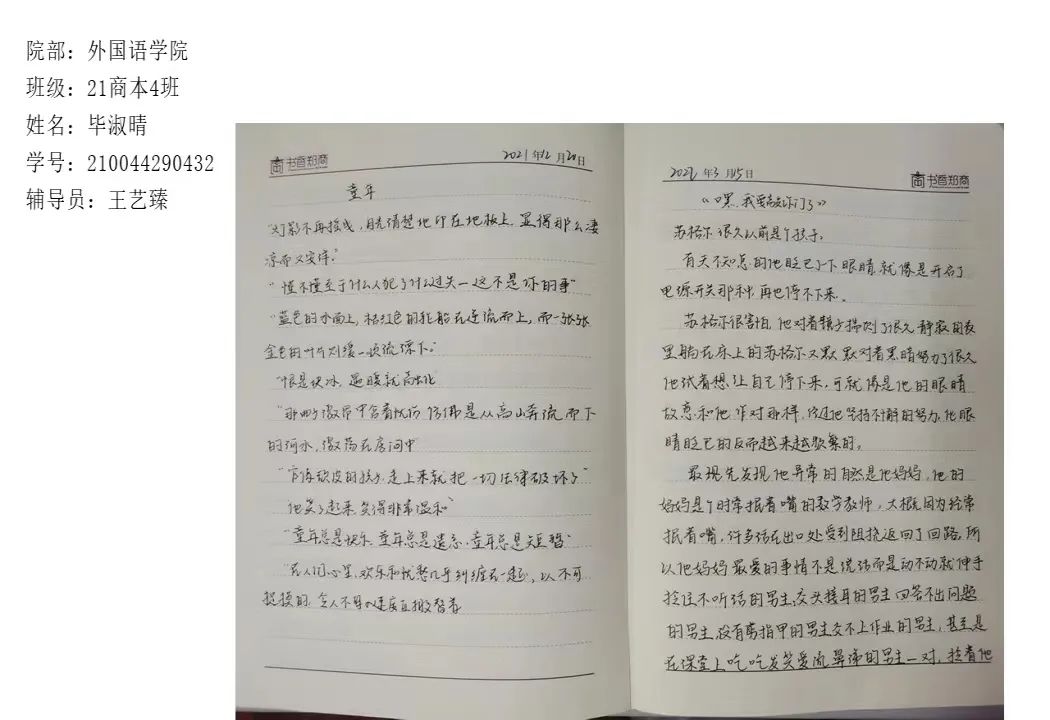 院部：外国语学院
班级：21商本4班
姓名：毕淑晴
学号：210044290432
辅导员：王艺臻
商 书香知商
2021年12月20日
童年
"灯影不再摇曳，月光清楚地印在地板上，显得那么凄
凉而又安详。"
"懂不懂至于什么人犯了什么过失—这不是你的事"
"蓝色的水面上，桔红色的轮船在逆流而上，而一张张
金色的叶片则缓缓顺流漂下。"
"恨是快冰，遇暖就融化"
中含着忧伤 仿佛是从高山奔流而下
的河水，激荡在房间中
顽皮的孩子，走上来就把一切法律破坏了"
他笑了起来，笑得非常温和"
"童年总是快乐，童年总是遗忘，童年总是短暂"
"在人们心里，欢乐和忧愁几乎纠缠在一起，以不可
捉摸的，令人不可 速度互撤替着
2022年3月15日
商 书香知商
《嘿，我要敲你门了》
苏格尔很久以前是个孩子。
有天不知怎的他眨巴了下眼睛，就像是开启了
电源开关那种，再也停不下来。
苏格尔很害怕，他对着镜子揣测了很久，静寂的夜
里躺在床上的苏格尔又默默对着黑暗努力了很久
他试着想让自己停下来，可就像是他的眼睛
故意和他作对那样，经过他坚持不懈的努力，他眼
睛眨巴的反而越来越频繁的。
最现先发现他异常的自然是他妈妈，他的
妈妈是个时常抿着嘴的数学教师，大概因为经常
抿着嘴，许多话在出口处受到阻挠返回了回路，所
以他妈妈最爱的事情不是说话而是动不动就伸手
拎住不听话的男生，交头接耳的男生，回答不出问题
的男生，没有剪指甲的男生，交不上作业的男生，甚至是
在课堂上吃吃发笑爱流鼻涕的男生一对，拎着他